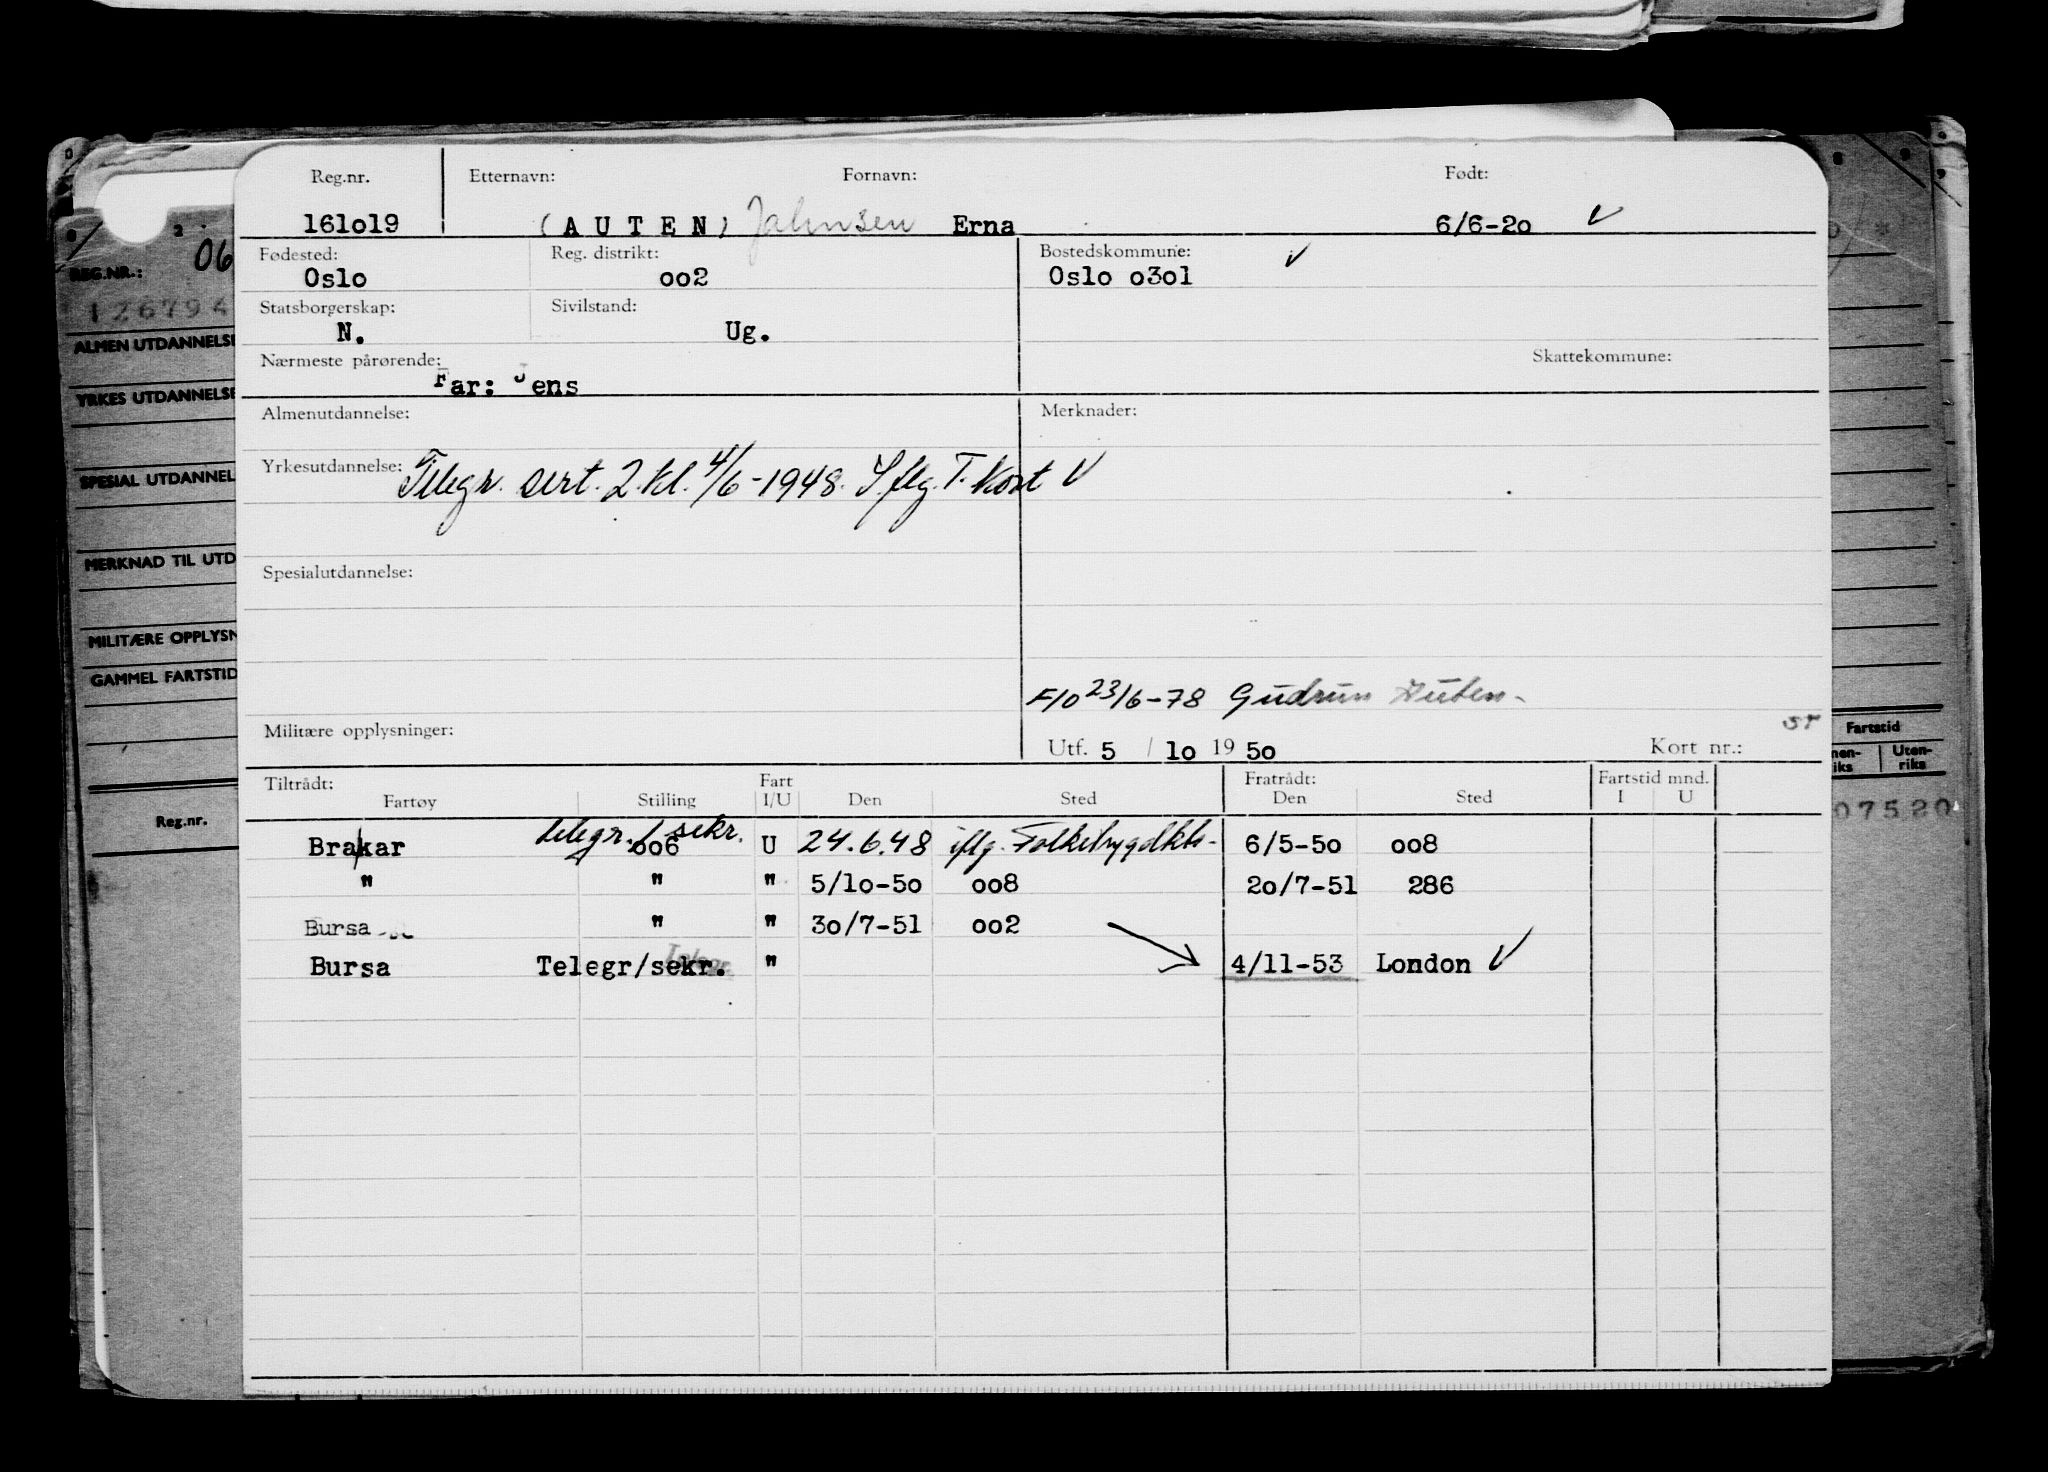 Reg.nr. Etternavn: Fornavn: Født:
161o19 (AUTEN) Jahnsen Erna 6/6-2o
Fødested: Reg. distrikt: Bostedskommune:
Oslo oo2 Oslo o3o1
Statsborgerskap: Sivilstand:
N. Ug.
Nærmeste pårørende: Skattekommune:
Far: Jens
Almenutdannelse: Merknader:
Yrkesutdannelse: Telegr. sert. 2.kl. 4/6-1948. I.flg. T. Kort
Spesialutdannelse:
F/O 23/6-78 Gudrun Auten
Militære opplysninger: Utf. 5 / 1o 19 5o Kort nr.:
Tiltrådt: Fart Fratrådt: Fartstid mnd.
Fartøy Stilling I/U Den Sted Den Sted I U
telegr./sekr.
Brakar oo6 U 24.6.48 iflg. 6/5-5o oo8
" " " 5/1o-5o oo8 2o/7-51 286
Bursa " " 3o/7-51 oo2
Bursa Telegr/sekr. " 4/11-53 London
2
06
REG.NR.:
126794
ALMEN UTDANNELSE
YRKES UTDANNELSE
SPESIAL UTDANNEL
MERKNAD TIL UTD
MILITÆRE OPPLYSN
GAMMEL FARTSTID
Reg.nr.
Fartstid
nen-
iks
Uten-
riks
07520